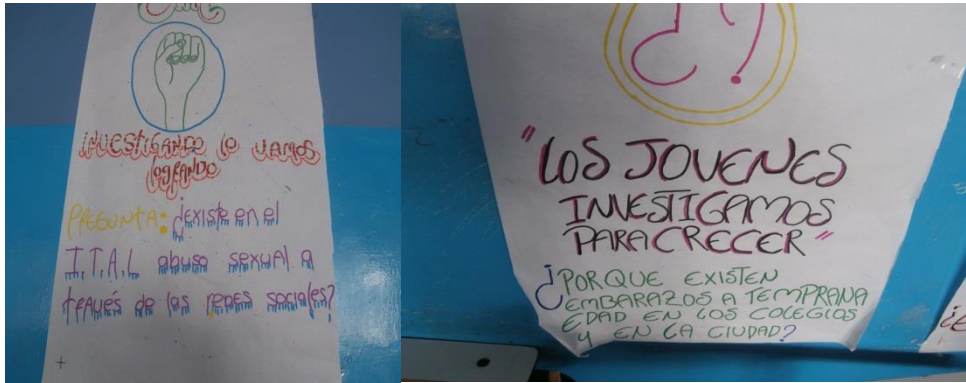 INVESTIGANDO lo VAMOS
logrando
PREGUNTA: ¿existe en el
I.T.A.L abuso sexual a
través de las redes sociales?
"LOS JOVENES
INVESTIGAMOS
PARA CRECER"
¿PORQUE EXISTEN
EMBARAZOS A TEMPRANA
EDAD EN LOS COLEGIOS
Y EN LA CIUDAD?